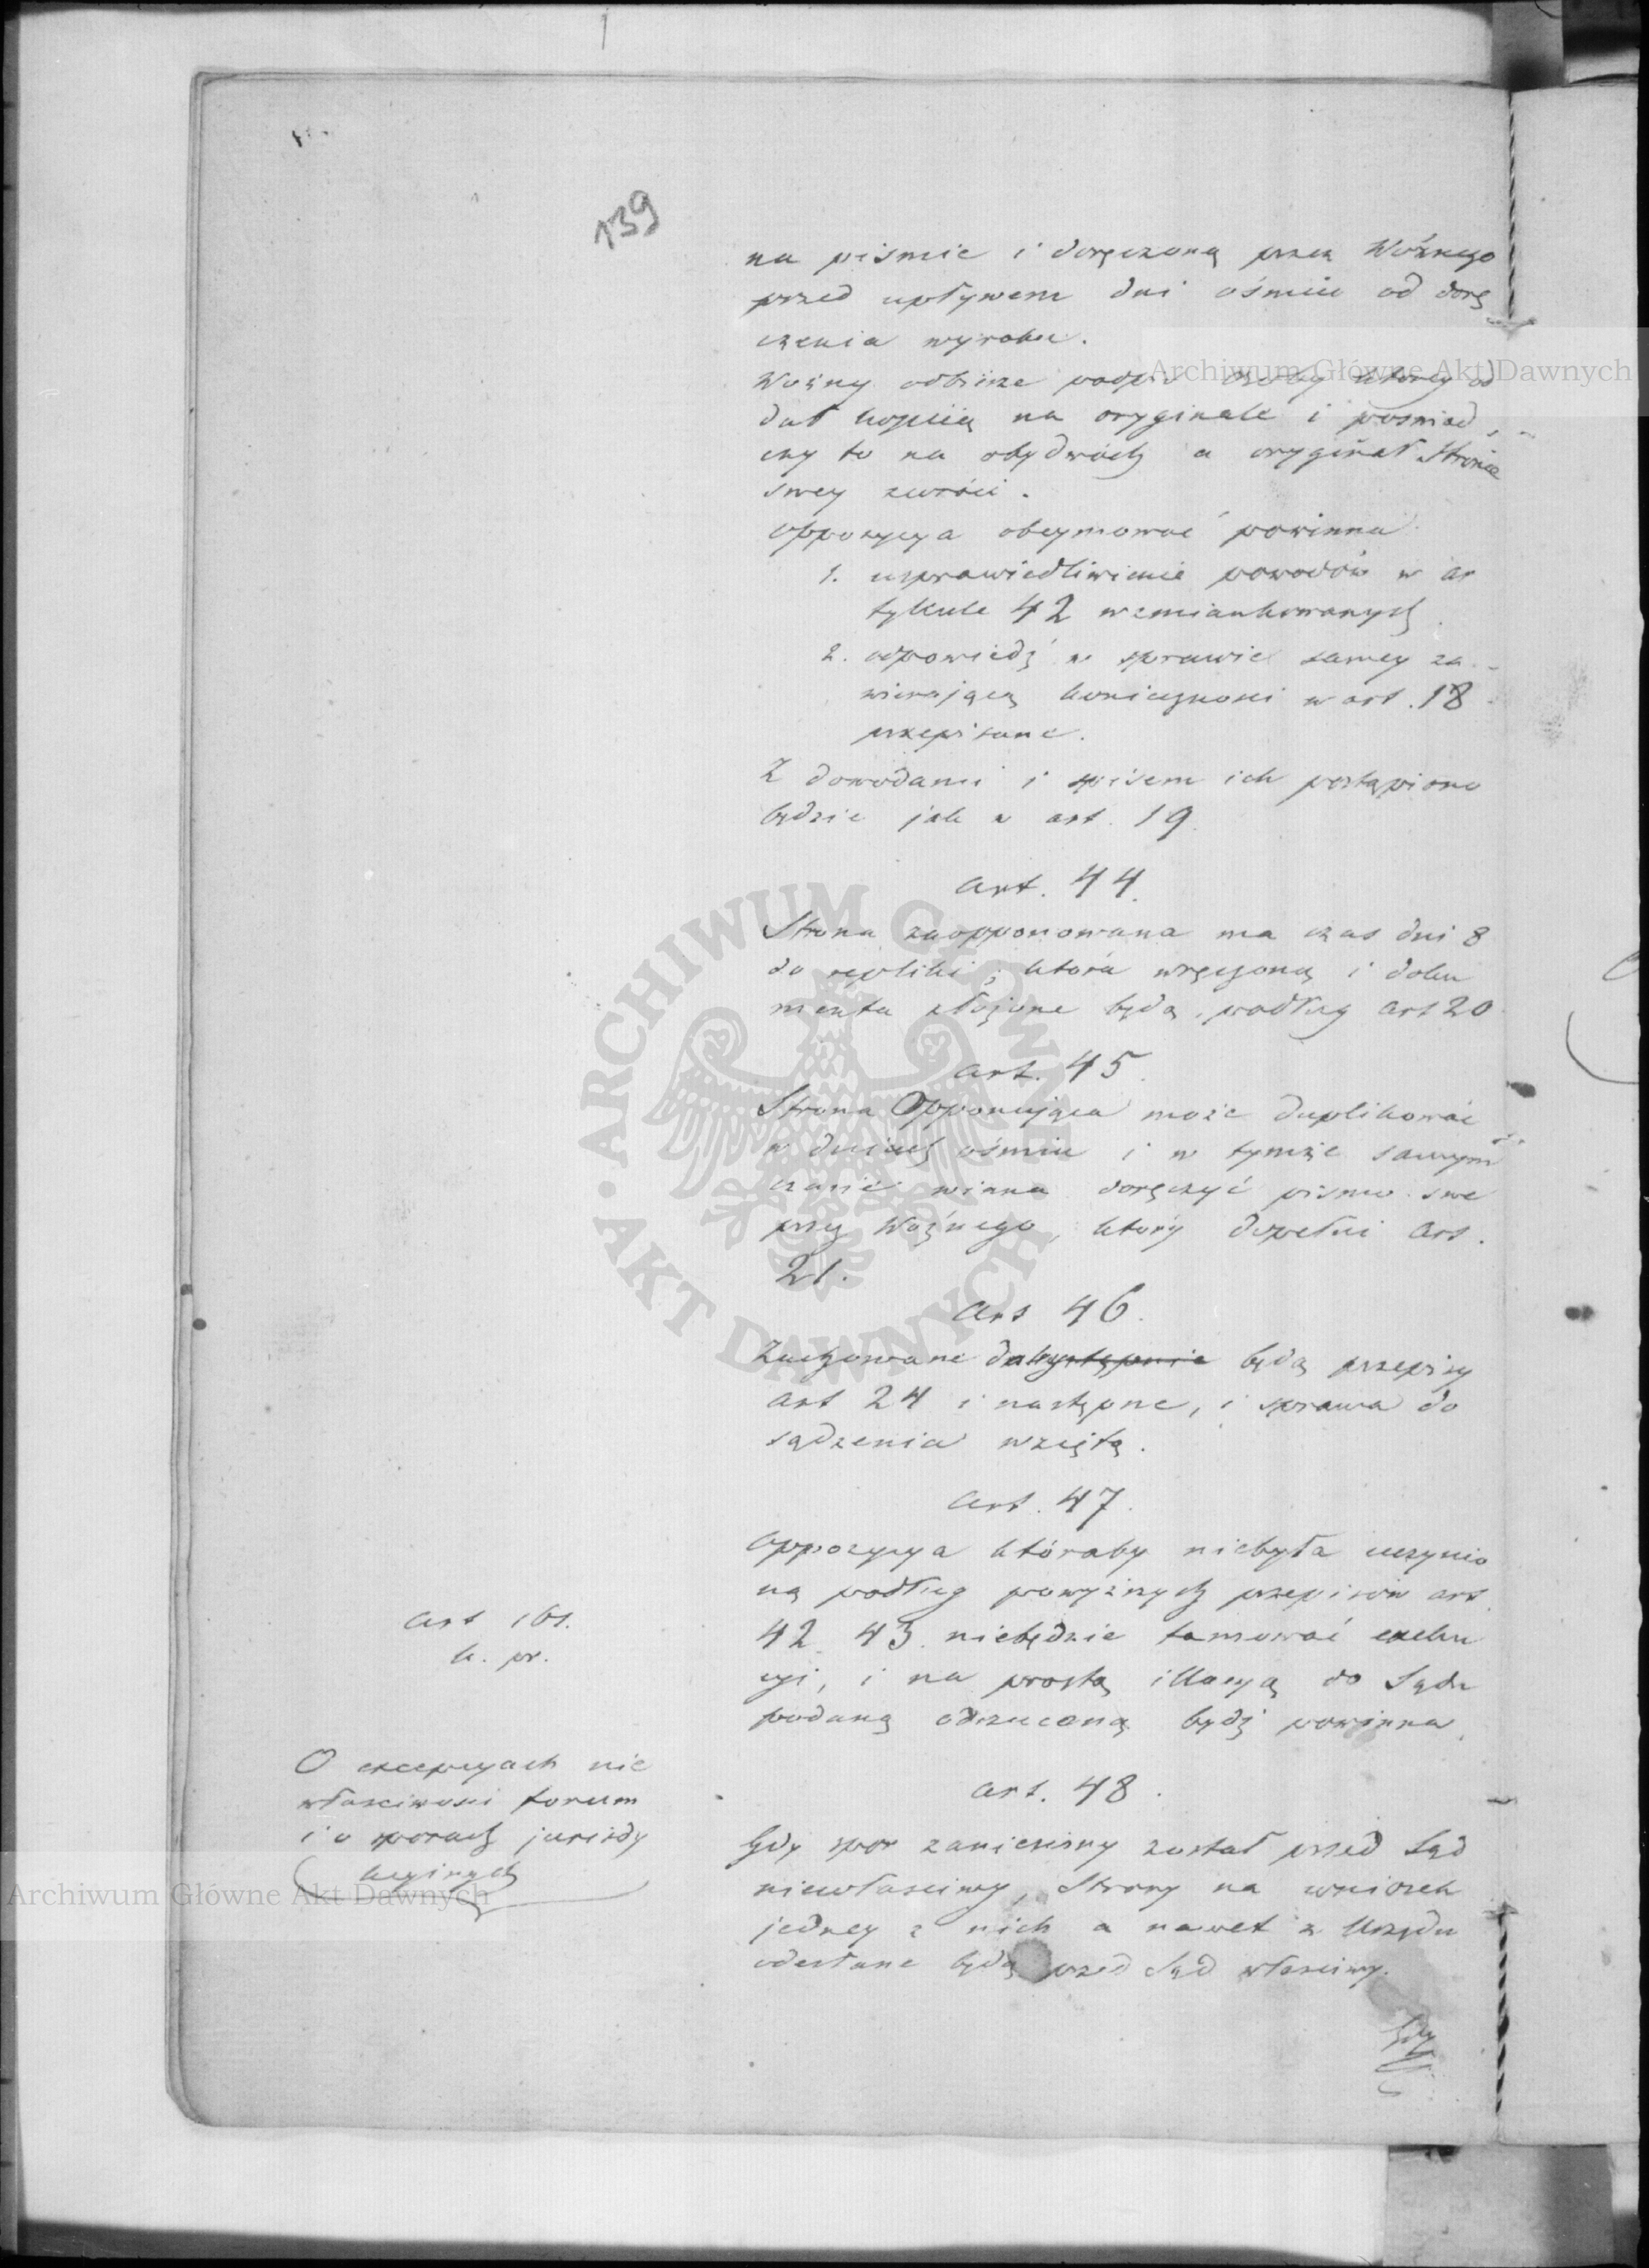 139
na piśmie i doręczoną przez Woźnego
przed upływem dni ośmiu od dorę
czenia wyroku.
Woźny odbierze podpis osoby którey od
dał kopiią na oryginale i poświad
czy to na obydwóch a oryginał Stronie
swey zwróci.
Oppozycya obeymować powinna
1. usprawiedliwienie powodów w ar
tykule 42 wzmiankowanych
2. odpowiedź w sprawie samey za
wierającą konieczności w art. 18
przepisane.
Z dowodami i spisem ich postąpiono
będzie jak w art. 19.
Art. 44.
Strona zaopponowana ma czas dni 8
do repliki, która wręczoną i doku
menta złożone będą, podług art 20
Art. 45.
Strona Opponująca może duplikować
w dniach ośmiu i w tymże samym
czasie winna doręczyć pismo swe
przez Woźnego, który dopełni Art.
21.
Art 46.
Zachowane będą przepisy
art 24 i następne, i sprawa do
sądzenia wziętą.
Art. 47.
Oppozycya któraby niebyła uczynio
ną podług powyższych przepisów art.
42. 43. niebędzie tamować exeku
cyi, i na prostą illacyą do Sądu
podaną odrzuconą bydź powinna.
Art 161.
k. pr.
O excepcyach nie
właściwości forum
i o sporach jurisdy
kcyinych
Art. 48.
Gdy spor zaniesiony został przed Sąd
niewłaściwy, Strony na wniosek
jedney z nich a nawet z Urzędu
odesłane będą przed Sąd właściwy.
Gdy
Archiwum Główne Akt Dawnych
Archiwum Główne Akt Dawnych
ARCHIWUM GŁÓWNE • AKT DAWNYCH